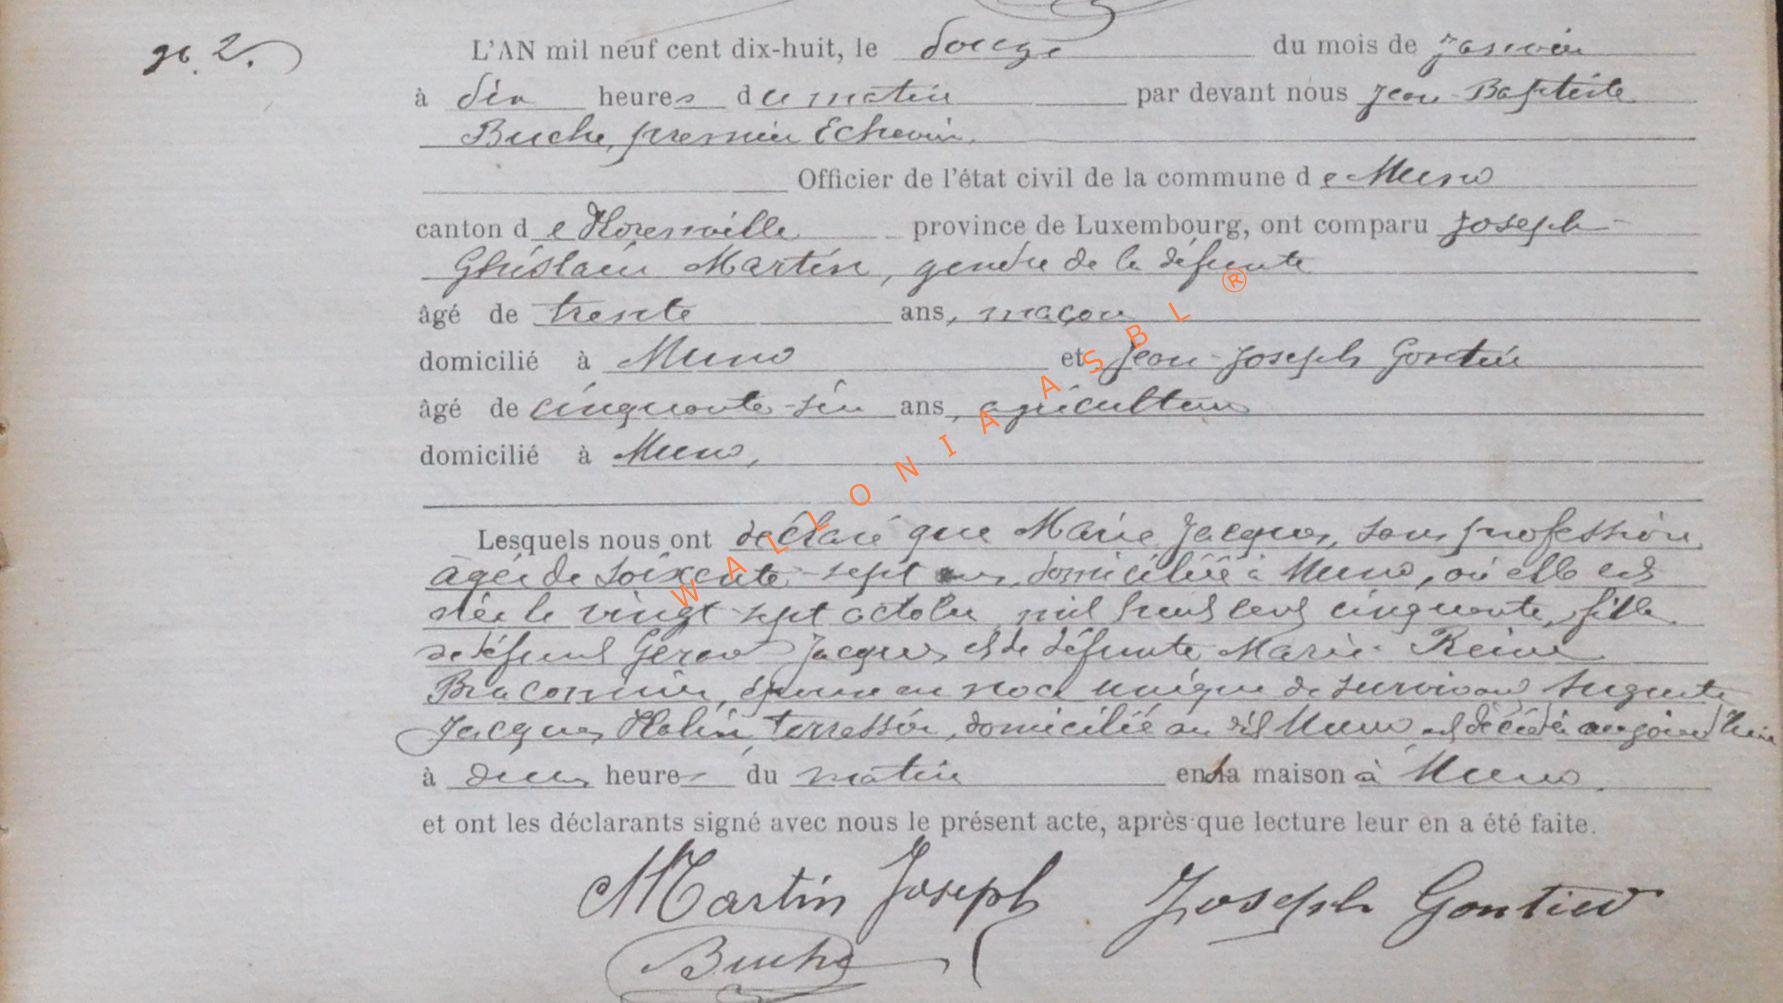 No. 2.
L'AN mil neuf cent dix-huit, le douze du mois de janvier
à dix heures du matin par devant nous Jean-Baptiste
Buche, premier Echevin,
Officier de l'état civil de la commune de Muno
canton de Florenville province de Luxembourg, ont comparu Joseph
Ghislain Martin, gendre de la défunte
âgé de trente ans, maçon
domicilié à Muno et Jean-Joseph Gontier
âgé de cinquante-six ans, agriculteur
domicilié à Muno,
Lesquels nous ont déclaré que Marie Jacques, sans profession,
âgée de soixante-sept ans, domiciliée à Muno, où elle est
née le vingt-sept octobre mil huit cent cinquante, fille
de défunt Jacques et de défunte Marie-Reine
Braconnier, épouse en noce unique de survivant Auguste
Jacques terrassier, domicilié au dit Muno est décédée aujourd'hui
à deux heures du matin en sa maison à Muno.
et ont les déclarants signé avec nous le présent acte, après que lecture leur en a été faite.
Martin Joseph Joseph Gontier
Buche
WALLONIA ASBL ®